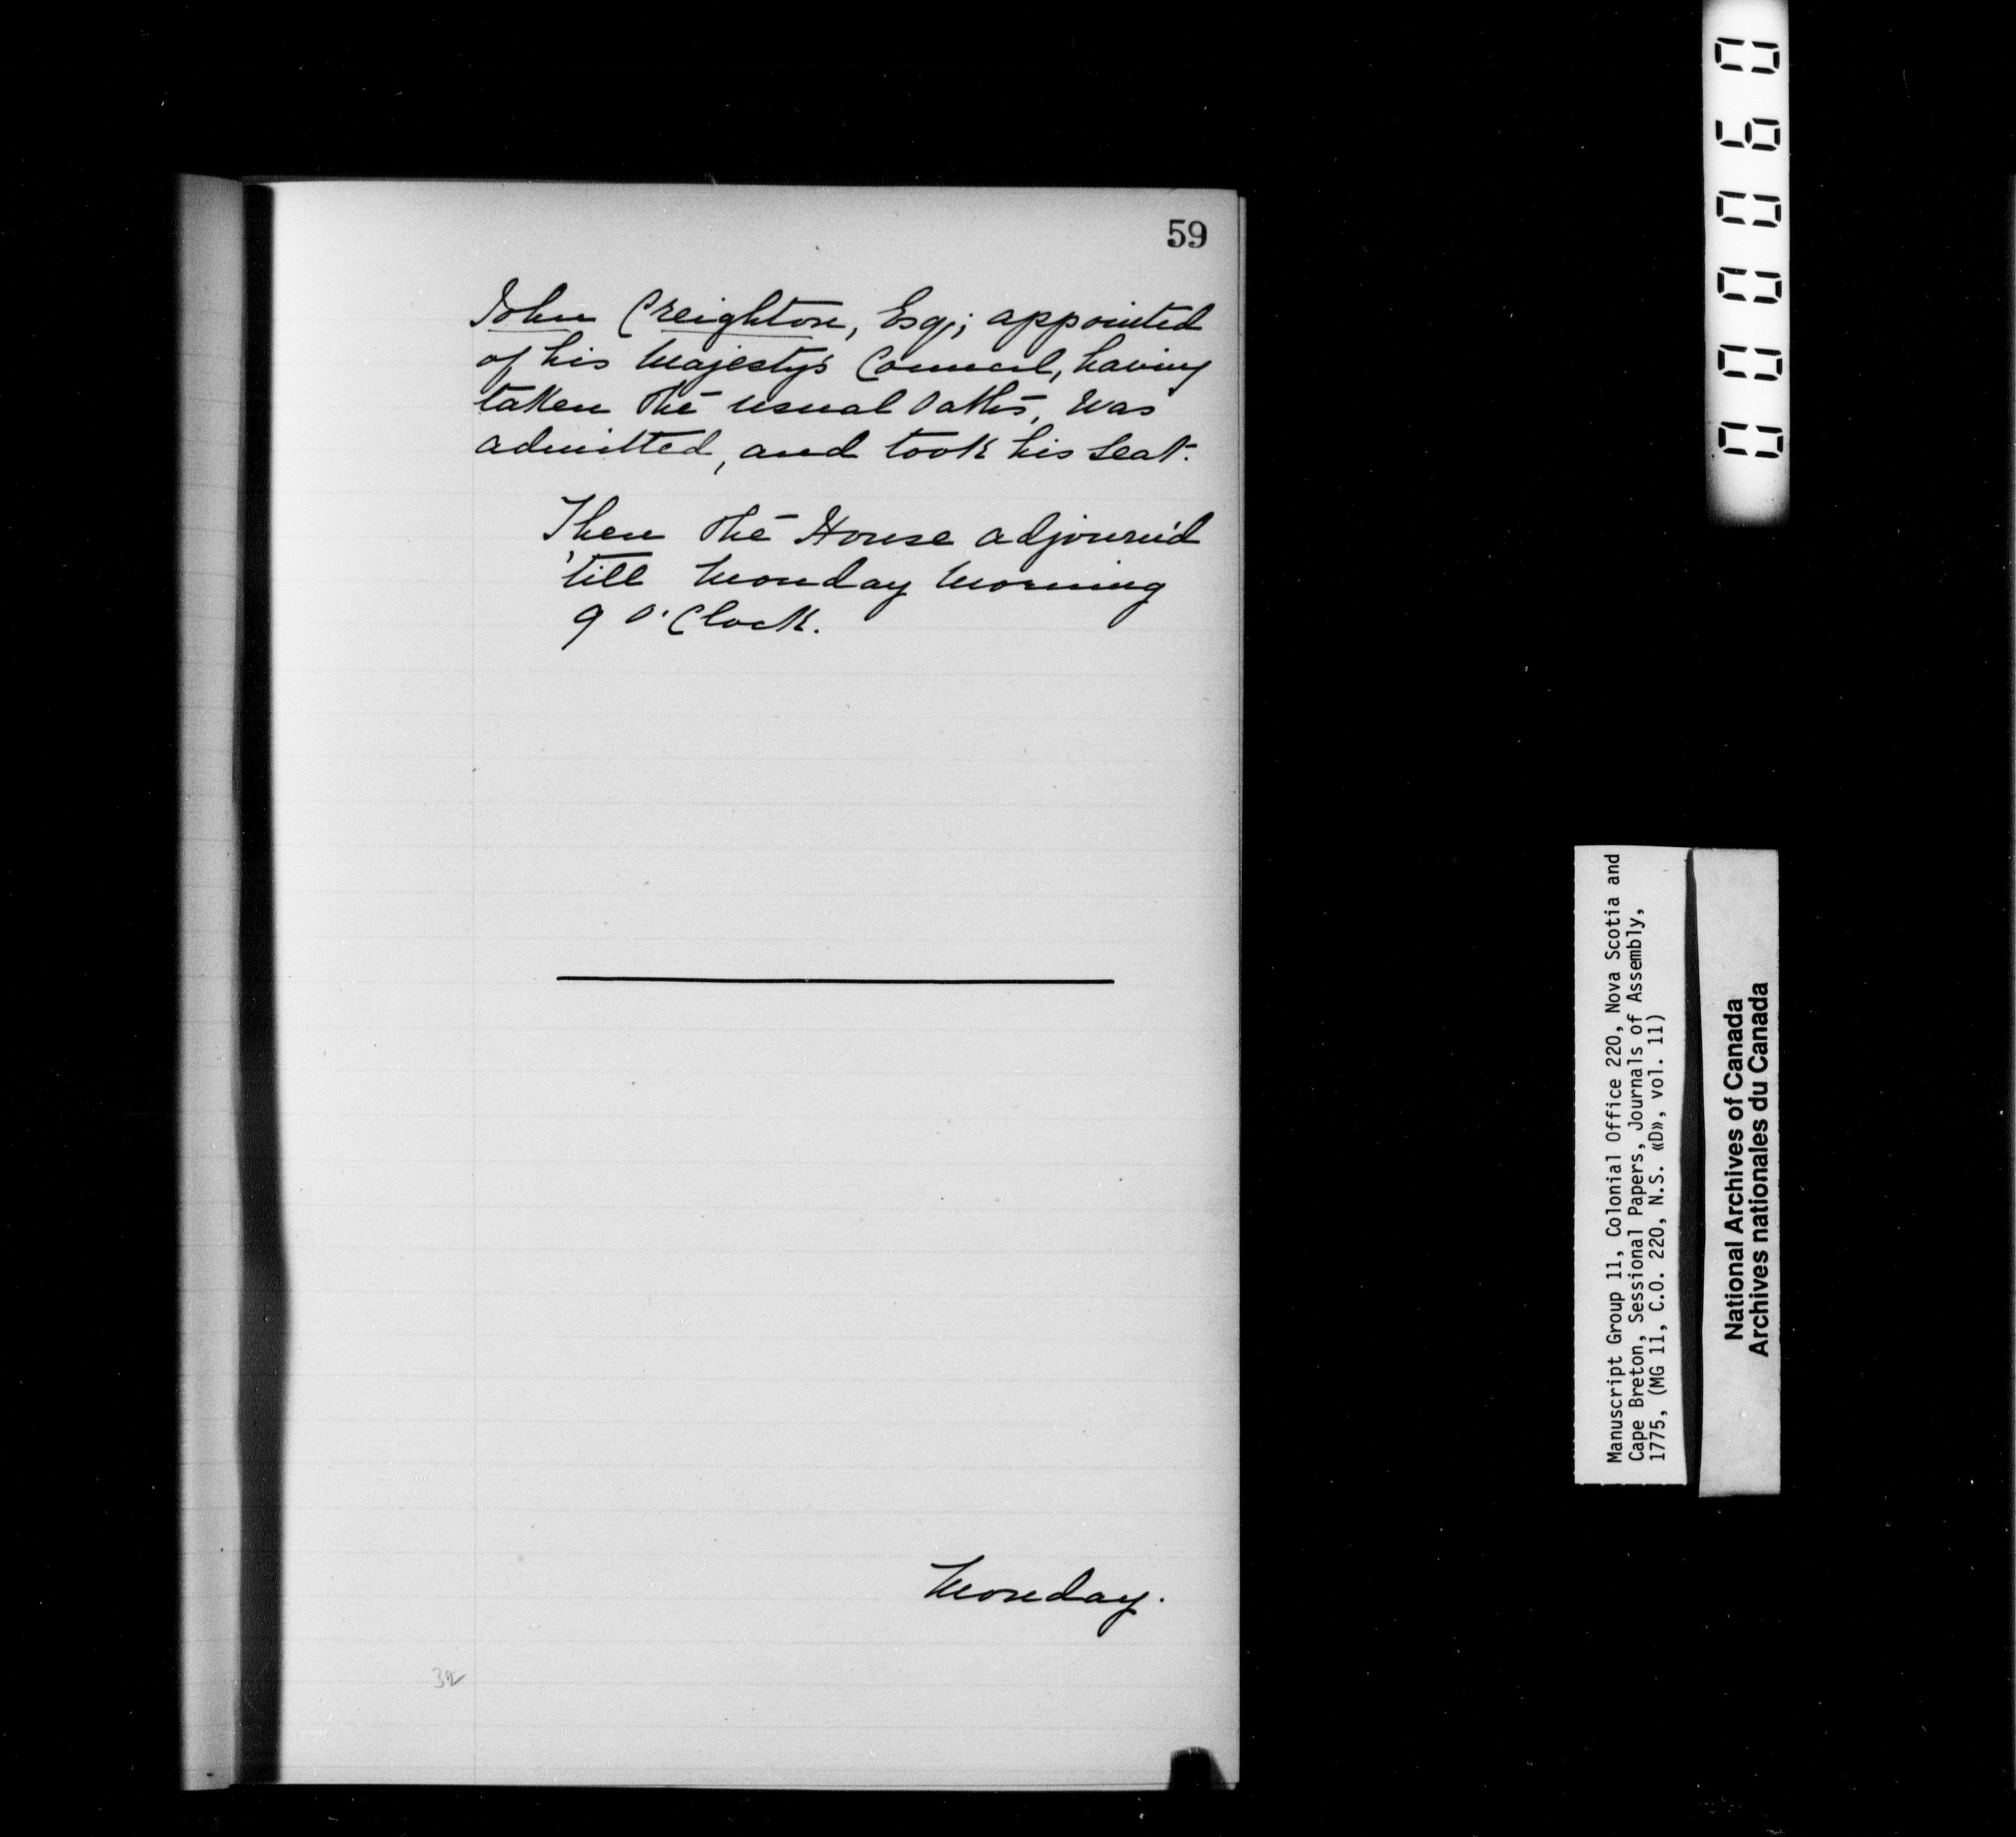 59
John Creighton, Esq; appointed
of his Majesty's Council, having
taken the usual Oaths, was
admitted, and took his Seat.
Then the House adjourn'd
'till Monday Morning
9 O'Clock.
Monday.
32
000060
Manuscript Group 11, Colonial Office 220, Nova Scotia and
Cape Breton, Sessional Papers, Journals of Assembly,
1775, (MG 11, C.O. 220, N.S. «D», vol. 11)
National Archives of Canada
Archives nationales du Canada